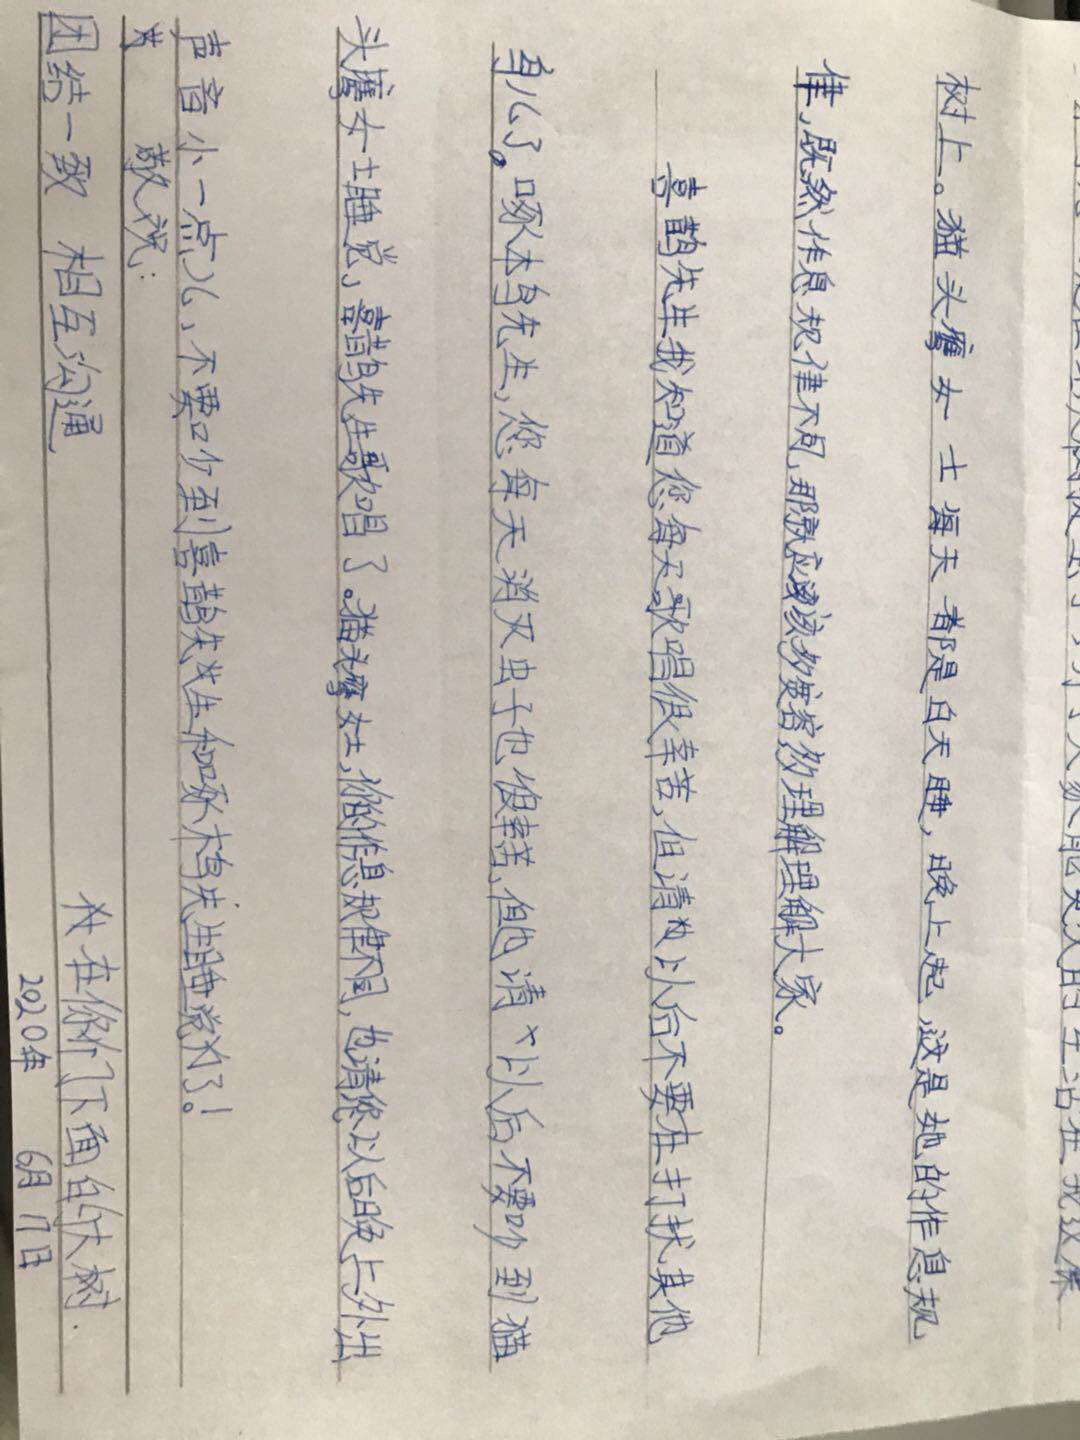 树上。猫头鹰女士每天都是白天睡，晚上起，这是她的作息规
律，既然作息规律不同，那就应该多宽容多理解理解大家。
喜鹊先生我知道您每天歌唱很辛苦，但请以后不要在打扰其他
鸟儿了。啄木鸟先生，您每天消灭虫子也很辛苦，但也请以后不要吵到猫
头鹰女士睡觉，喜鹊先生歌唱了。猫头鹰女士，你的作息规律不同，也请您以后晚上外出
声音小一点儿，不要吵到喜鹊先生和啄木鸟先生睡觉了！
敬祝：
团结一致 相互沟通
在你们下面的大树.
2020年 6月17日